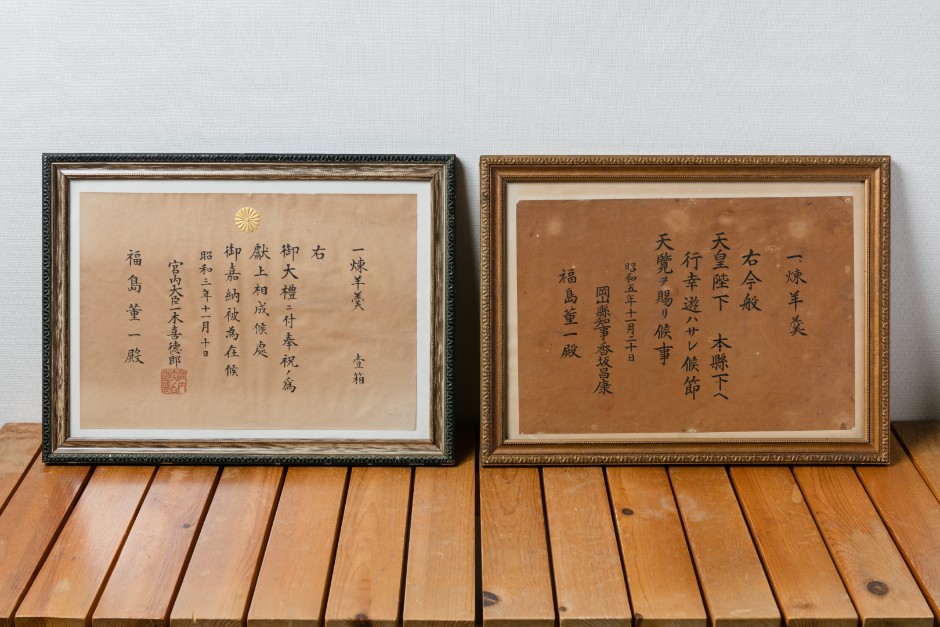 一煉羊羹　壹箱
右
御大禮ニ付奉祝ノ為
獻上相成候處
御嘉納被為在候
昭和三年十一月十日
宮内大臣一木喜德郎
福島董一殿
一煉羊羹
右今般
天皇陛下　本縣下へ
行幸遊ハサレ候節
天覽ヲ賜リ候事
昭和五年十一月二十日
岡山縣知事香坂昌康
福島董一殿